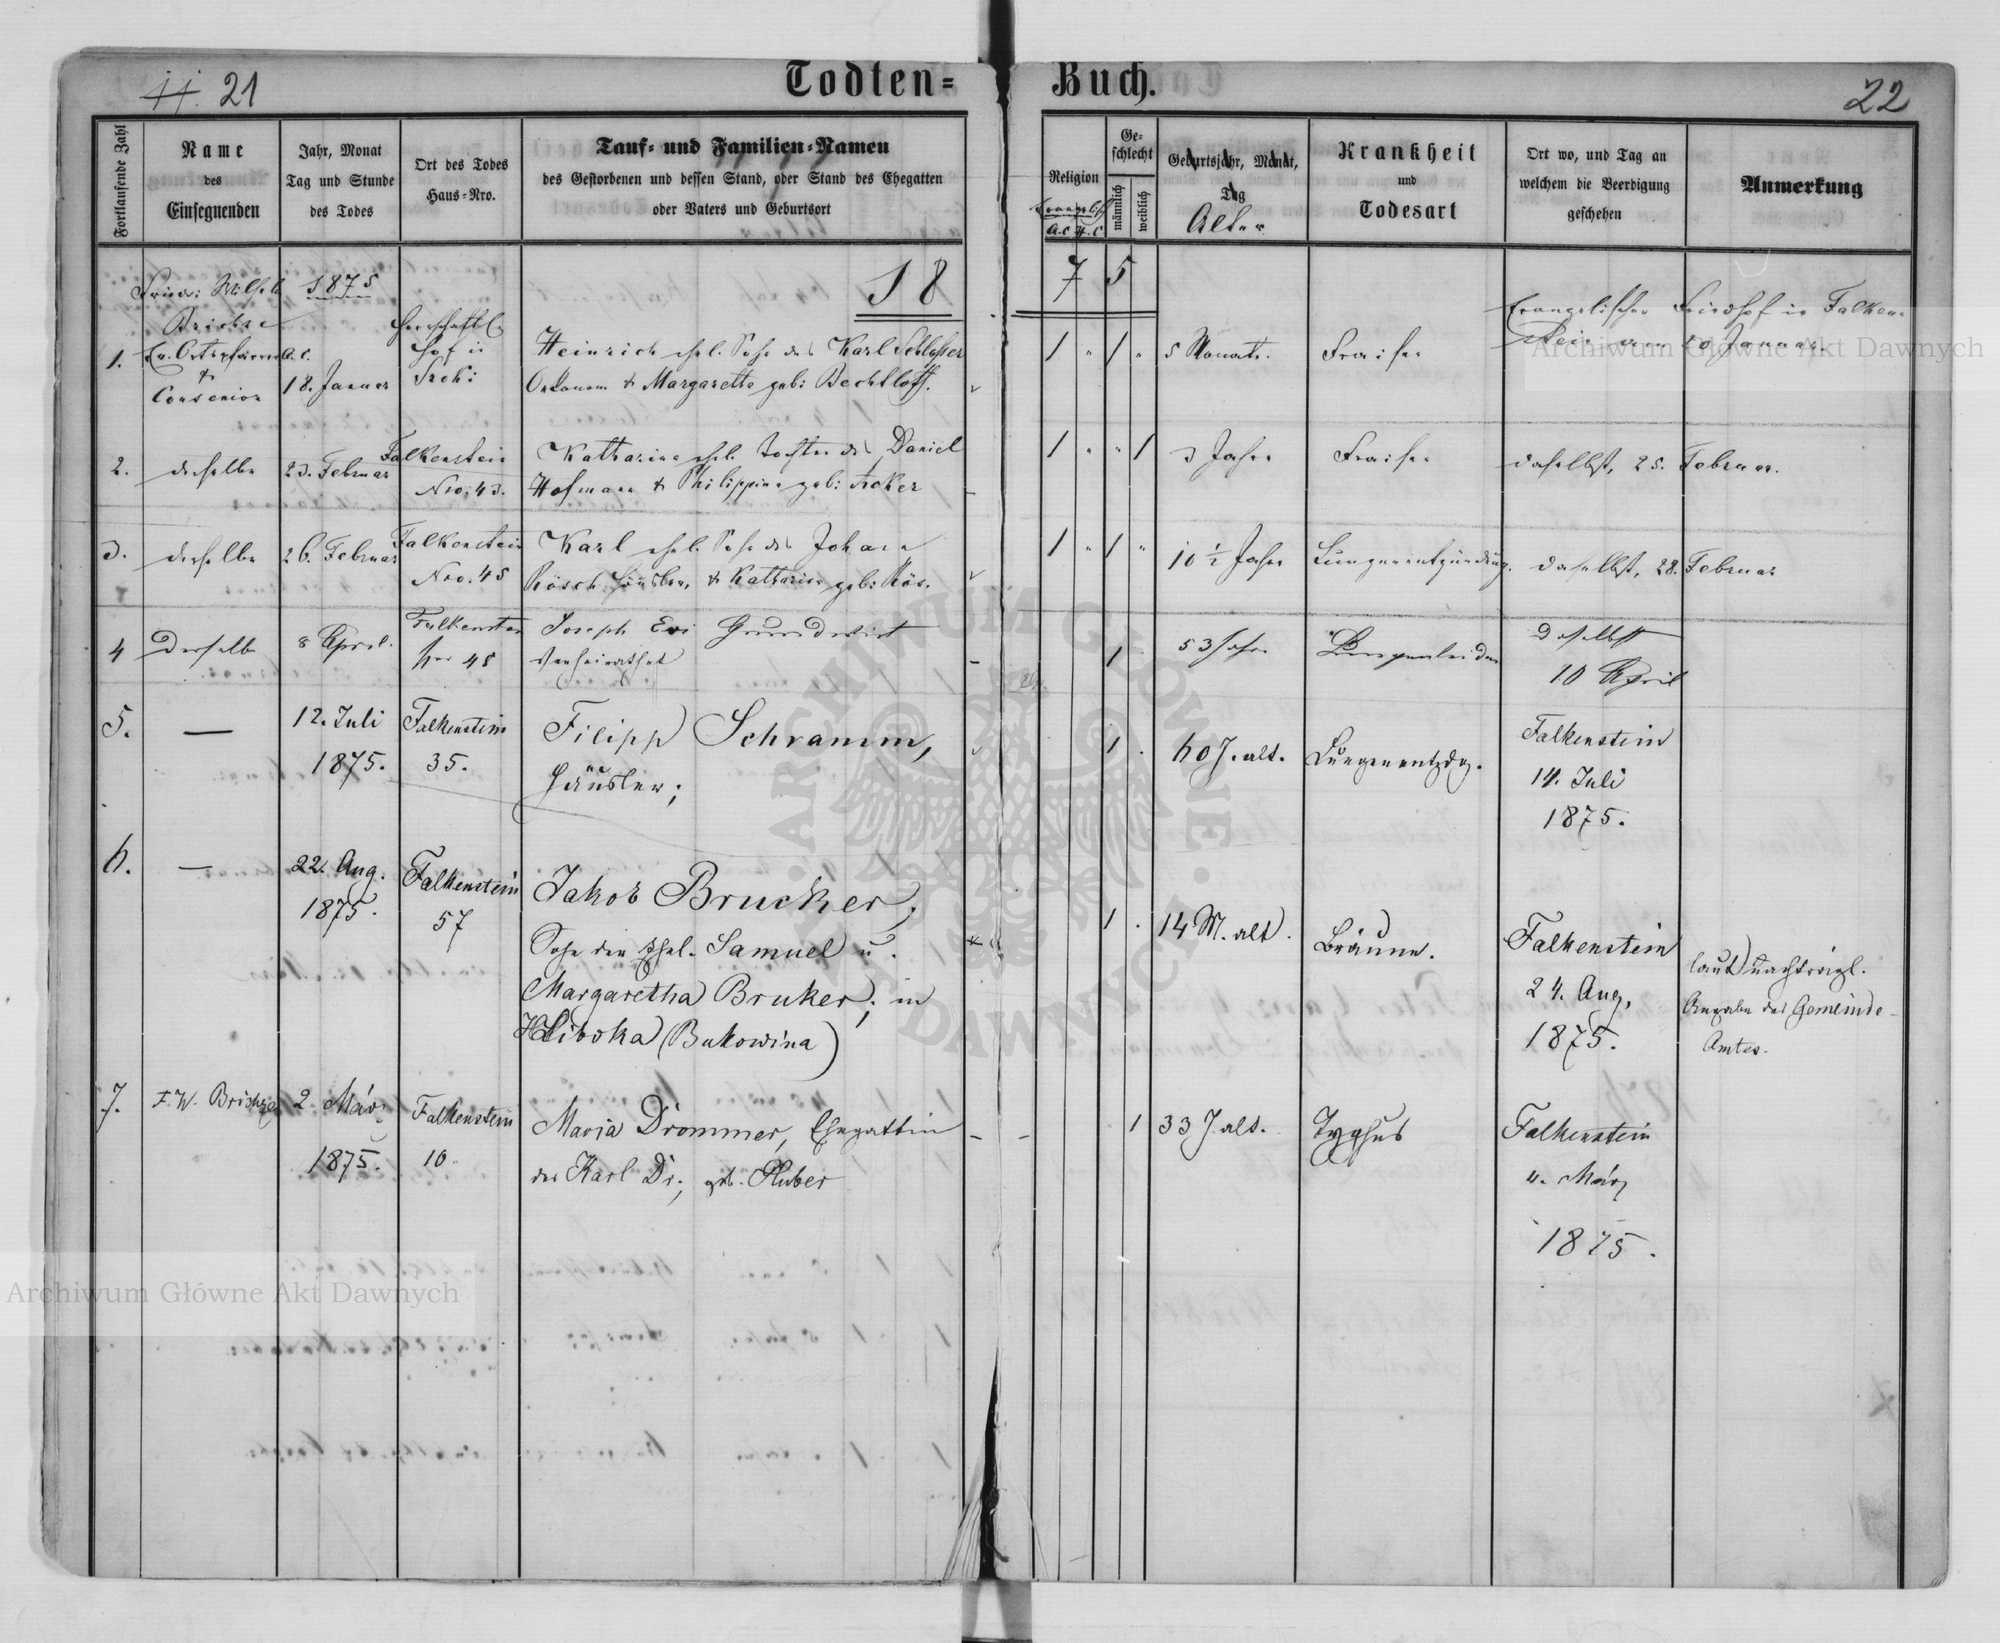 21
Todten-Buch.
22
Fortlaufende Zahl
Name
des
Einsegnenden
Jahr, Monat
Tag und Stunde
des Todes
Ort des Todes
Haus-Nro.
Tauf- und Familien-Namen
des Gestorbenen und dessen Stand, oder Stand des Ehegatten
oder Vaters und Geburtsort
Religion
Evangelisch
A.C. H.C.
Ge-
schlecht
männlich
weiblich
Geburtsjahr, Monat,
Tag
Alter
Krankheit
und
Todesart
Ort wo, und Tag an
welchem die Beerdigung
geschehen
Anmerkung
1875
18
7 5
1.
Ev. Ortspfarrer A.C.
&
Consenior
18. Januar
Hof in
Heinrich ehel. Sohn des Karl Schlosser
Oekonom & Margaretha geb: Bechtloff.
1 " 1 "
5 Monate.
Fraisen
Evangelischer Friedhof in Falken-
stein am 20 Januar
2.
derselbe
23. Februar
Falkenstein
Nro. 43.
Katharina ehel. Tochter des Daniel
Hofmann & Philippine geb: Acker
1 " " 1
3 Jahre
Fraisen
daselbst, 25. Februar.
3.
derselbe
26. Februar
Falkenstein
Nro. 45
Karl ehel. Sohn des Johann
Rösch Häusler, & Katharina geb: Rös.
1 " 1 "
10 ½ Jahre
Lungenentzündung.
daselbst, 28. Februar
4
Derselbe
8 April.
Falkenstein
Nro 48
Joseph Evi Grundwirt
Verheirathet
1
53 Jahre
Lungenleiden
Daselbst
10 April
5.
—
12. Juli
1875.
Falkenstein
35.
Filipp Schramm,
Häusler;
1 .
60 J. alt.
Lungenentzdg.
Falkenstein
14. Juli
1875.
6.
—
22. Aug.
1875.
Falkenstein
57
Jakob Brucker,
Sohn der Ehel. Samuel u.
Margaretha Bruker; in
Hliboka (Bukowina)
1 .
14 M. alt.
Bräune.
Falkenstein
24. Aug.
1875.
laut nachträgl.
Angabe des Gemeinde-
Amtes.
7.
F. W. Brichze
2. März
1875.
Falkenstein
10.
Maria Drommer, Ehegattin
des Karl Dr., geb. Huber
1
33 J. alt.
Typhus
Falkenstein
4. März
1875.
Archiwum Główne Akt Dawnych
Archiwum Główne Akt Dawnych
ARCHIWUM GŁÓWNE AKT DAWNYCH